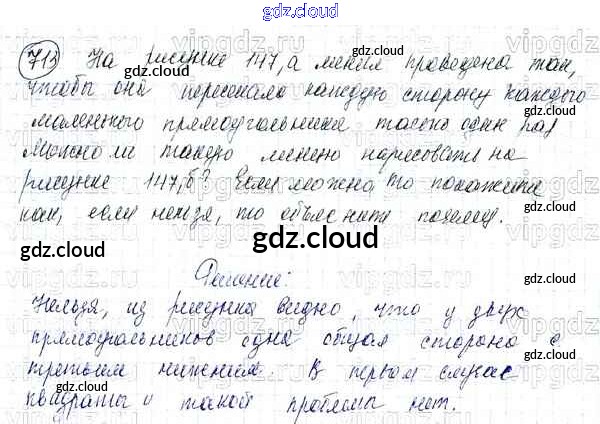 gdz.cloud
713 На рисунке 147, а линия проведена так,
чтобы она пересекала каждую сторону каждого
маленького прямоугольника только один раз
Можно ли такую линию нарисовать на
рисунке 147, б? Если можно, то покажите
как, если нельзя, то объясните почему.
gdz.cloud
Решение:
Нельзя, из рисунка видно, что у двух
прямоугольников одна общая сторона с
третьим нижним. В первом случае
квадраты и такой проблемы нет.